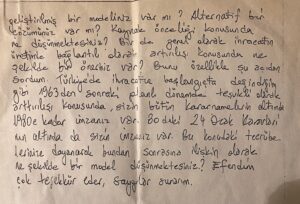 geliştirilmiş bir modeliniz var mı? Alternatif bir
çözümünüz var mı? Kaynak önceliği konusunda
ne düşünmektesiniz? Bir de genel olarak ihracatın
üretimle bağlantılı olarak artırılış konusunda ne
şekilde bir öneriz var? Bunu özellikle şu açıdan
sordum Türkiyede ihracatta başlangıçta değindiğim
gibi 1963den sonraki planlı dönemde teşvikli olarak
arttırılışı konusunda, sizin bütün kararnamelerin altında
1980e kadar imzanız var. 80deki 24 Ocak Kararları
nın altında da sizin imzanız var. Bu konudaki tecrübe
lerinize dayanarak bundan sonrasına ilişkin olarak
ne şekilde bir model düşünmektesiniz? Efendim
çok teşekkür eder, saygılar sunarım.